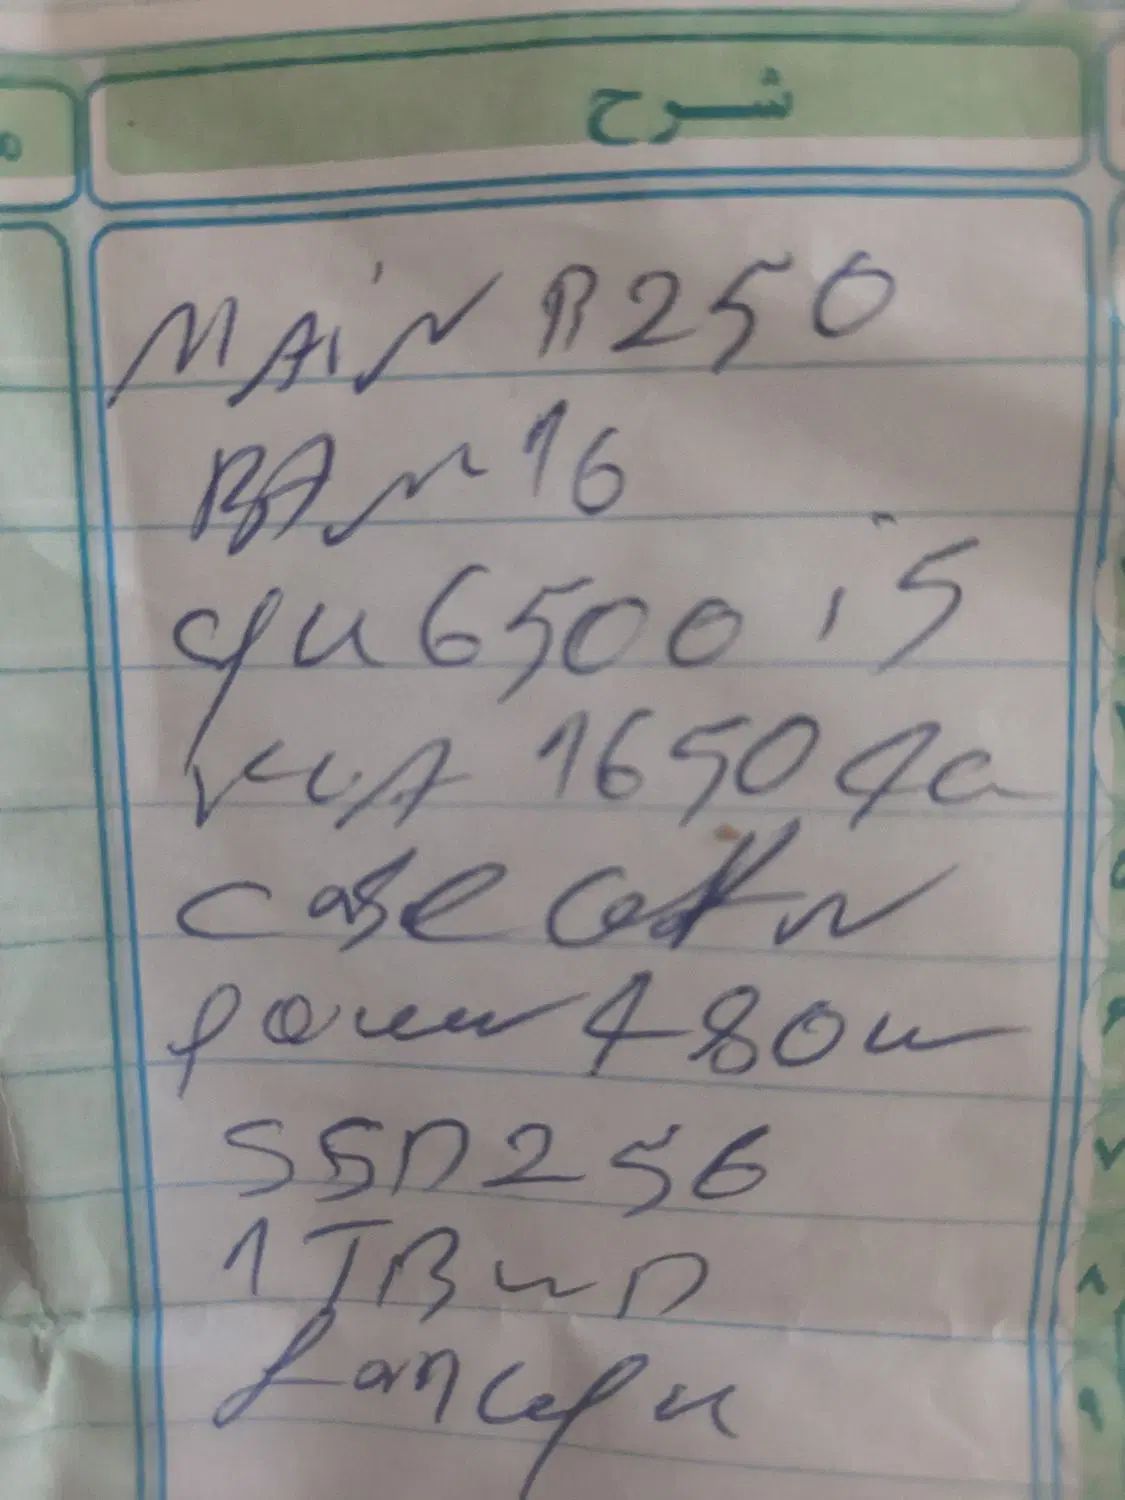 شرح
MAiN B250
RAM 16
cpu 6500 i5
VGA 1650 4G
case
power 480w
SSD 256
1TB WD
fan cpu